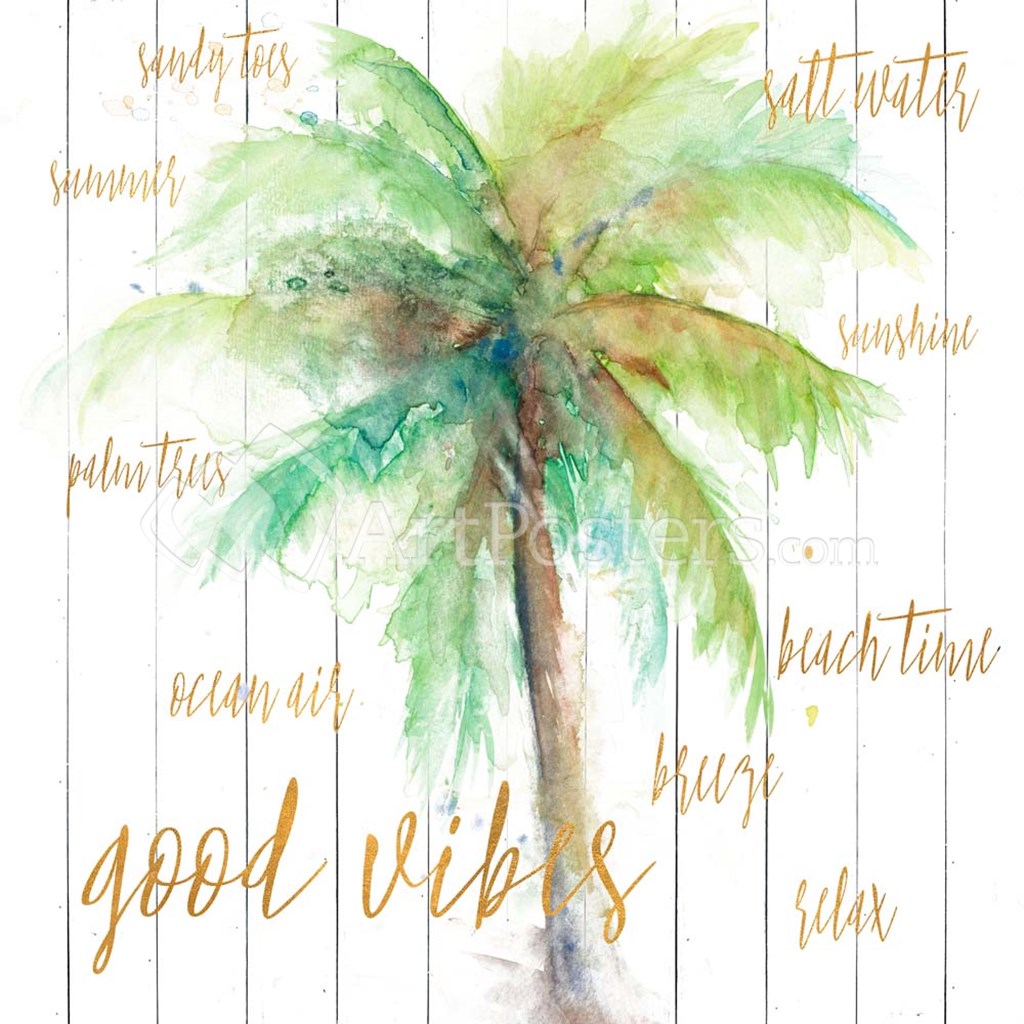 sandy toes
salt water
summer
sunshine
palm trees
ArtPosters.com
beach time
ocean air
breeze
good vibes
relax